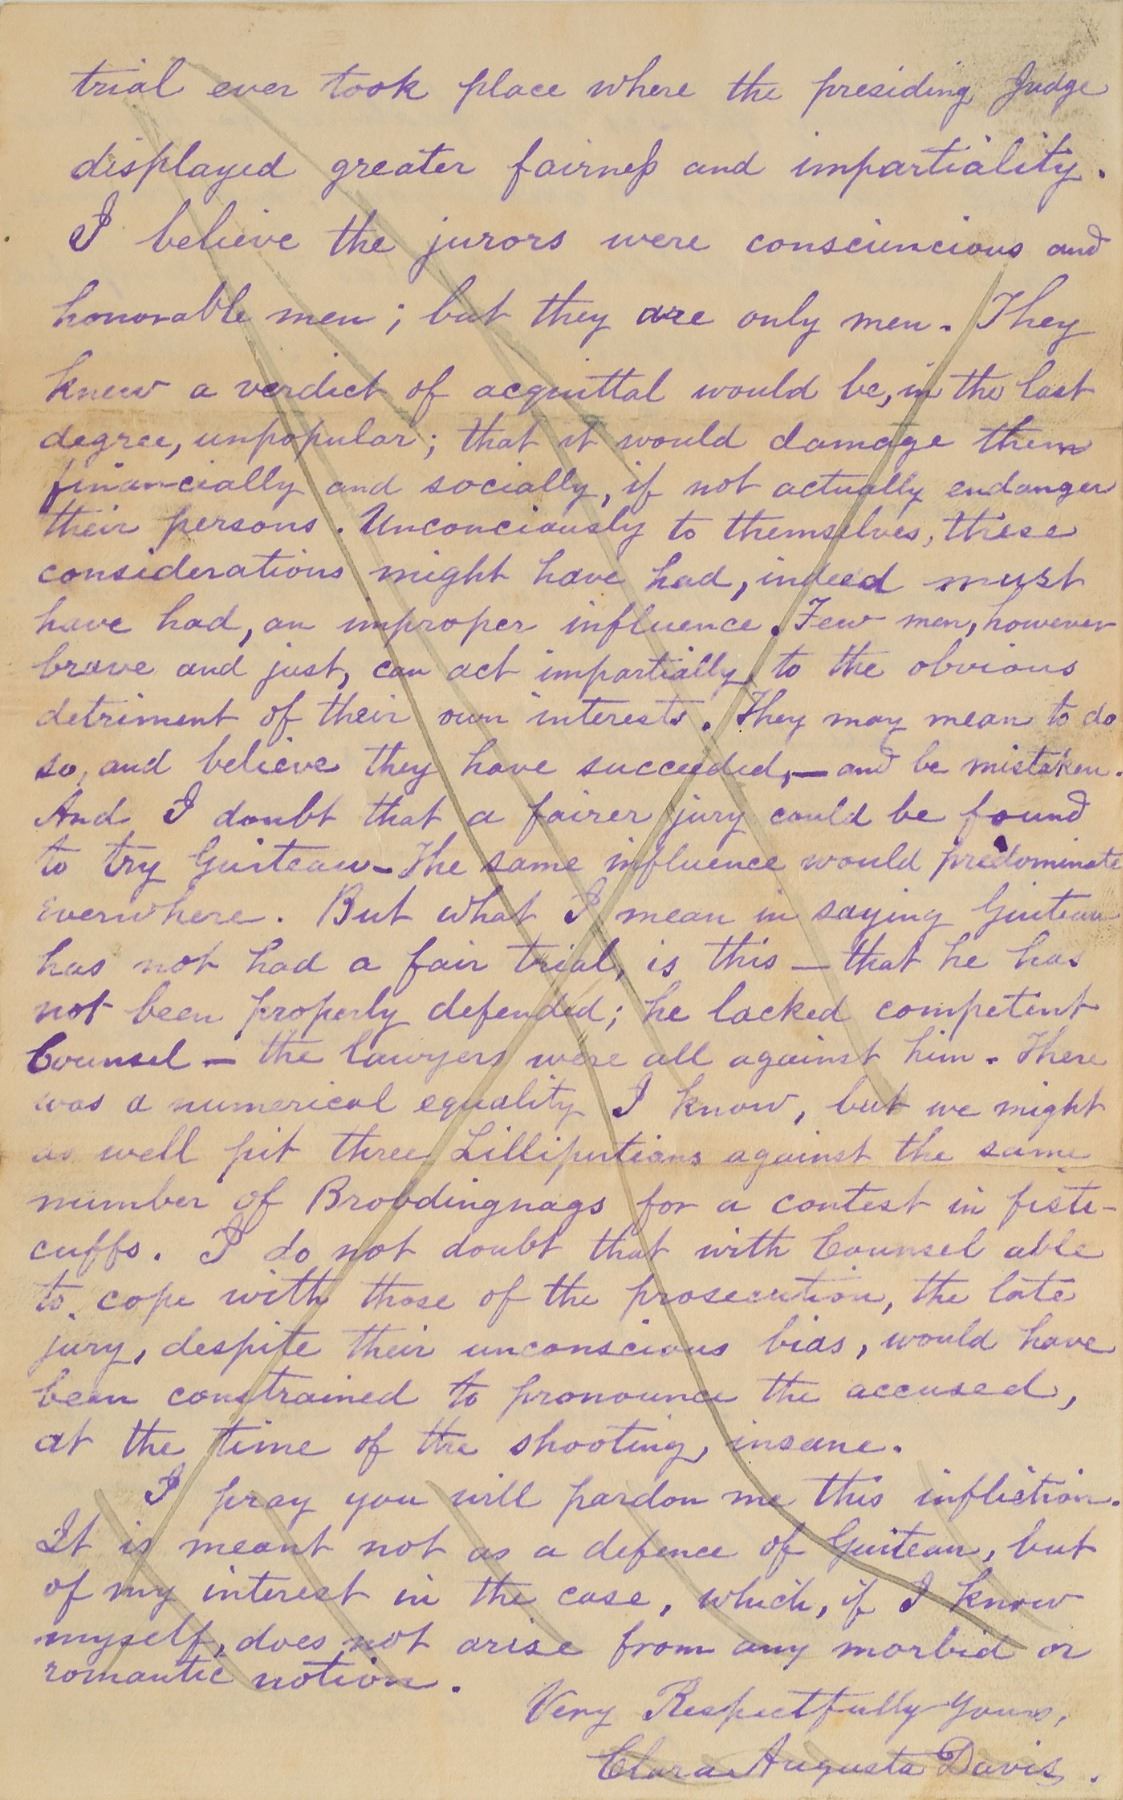 trial ever took place where the presiding Judge
displayed greater fairness and impartiality.
I believe the jurors were consciencious and
honorable men; but they are only men. They
knew a verdict of acquittal would be, in the last
degree, unpopular; that it would damage them
financially and socially, if not actually endanger
their persons. Unconciously to themselves, these
considerations might have had, indeed must
have had, an improper influence. Few men, however
brave and just, can act impartially to the obvious
detriment of their own interests. They may mean to do
so, and believe they have succeeded, — and be mistaken.
And I doubt that a fairer jury could be found
to try Guiteau - The same influence would predominate
everwhere. But what I mean in saying Guiteau
has not had a fair trial, is this — that he has
not been properly defended; he lacked competent
Counsel — the lawyers were all against him. There
was a numerical equality I know, but we might
as well pit three Lilliputians against the same
number of Brobdingnags for a contest in fisti-
cuffs. I do not doubt that with Counsel able
to cope with those of the prosecution, the late
jury, despite their unconscious bias, would have
been constrained to pronounce the accused,
at the time of the shooting, insane.
I pray you will pardon me this infliction.
It is meant not as a defence of Guiteau, but
of my interest in the case, which, if I know
myself, does not arise from any morbid or
romantic notion.
Very Respectfully Yours,
Clara Augusta Davis.